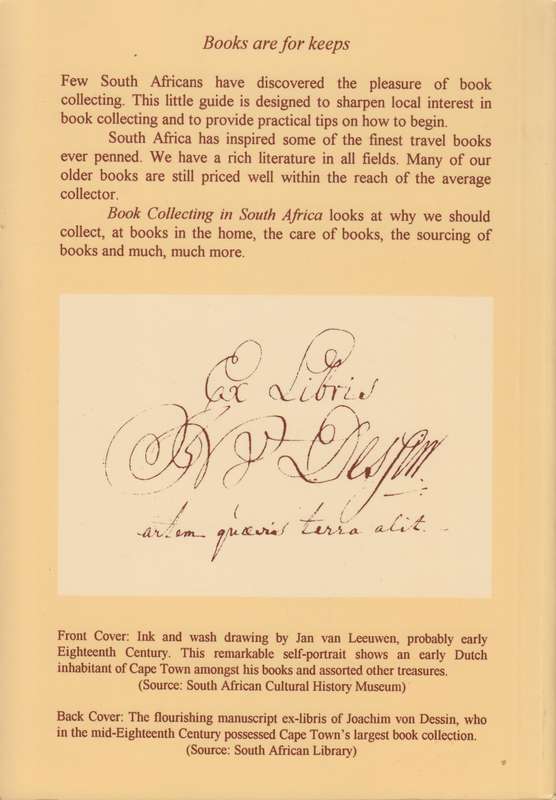 Books are for keeps
Few South Africans have discovered the pleasure of book
collecting. This little guide is designed to sharpen local interest in
book collecting and to provide practical tips on how to begin.
South Africa has inspired some of the finest travel books
ever penned. We have a rich literature in all fields. Many of our
older books are still priced well within the reach of the average
collector.
Book Collecting in South Africa looks at why we should
collect, at books in the home, the care of books, the sourcing of
books and much, much more.
Ex Libris
Dessin
artem quævis terra alit.
Front Cover: Ink and wash drawing by Jan van Leeuwen, probably early
Eighteenth Century. This remarkable self-portrait shows an early Dutch
inhabitant of Cape Town amongst his books and assorted other treasures.
(Source: South African Cultural History Museum)
Back Cover: The flourishing manuscript ex-libris of Joachim von Dessin, who
in the mid-Eighteenth Century possessed Cape Town's largest book collection.
(Source: South African Library)